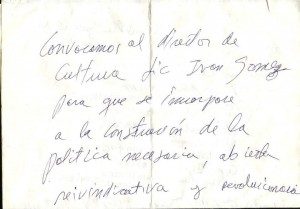 Convocamos al director de
Cultura Lic Ivan Gomez
para que se incorpore
a la construcción de la
política necesaria, abierta
reivindicativa y revolucionaria